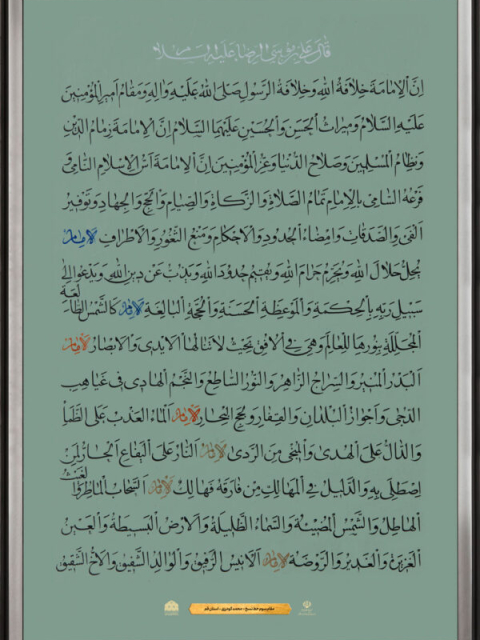 قال علي بن موسى الرضا عليه السلام
إن الإمامة خلافة الله وخلافة الرسول صلى الله عليه وآله ومقام أمير المؤمنين
عليه السلام وميراث الحسن والحسين عليهما السلام إن الإمامة زمام الدين
ونظام المسلمين وصلاح الدنيا وعز المؤمنين إن الإمامة أس الإسلام النامي و
فرعه السامي بالإمام تمام الصلاة والزكاة والصيام والحج والجهاد وتوفير
الفيء والصدقات وإمضاء الحدود والأحكام ومنع الثغور والأطراف الإمام
يحل حلال الله ويحرم حرام الله ويقيم حدود الله ويذب عن دين الله ويدعو إلى
سبيل ربه بالحكمة والموعظة الحسنة والحجة البالغة الإمام كالشمس الطالعة
المجللة بنورها للعالم وهي في الأفق بحيث لا تنالها الأيدي والأبصار الإمام
البدر المنير والسراج الزاهر والنور الساطع والنجم الهادي في غياهب
الدجى وأجواز البلدان والقفار ولجج البحار الإمام الماء العذب على الظمأ
والدال على الهدى والمنجي من الردى الإمام النار على اليفاع الحار لمن
اصطلى به والدليل في المهالك من فارقه فهالك الإمام السحاب الماطر والغيث
الهاطل والشمس المضيئة والسماء الظليلة والأرض البسيطة والعين
الغزيرة والغدير والروضة الإمام الأنيس الرفيق والوالد الشفيق والأخ الشقيق